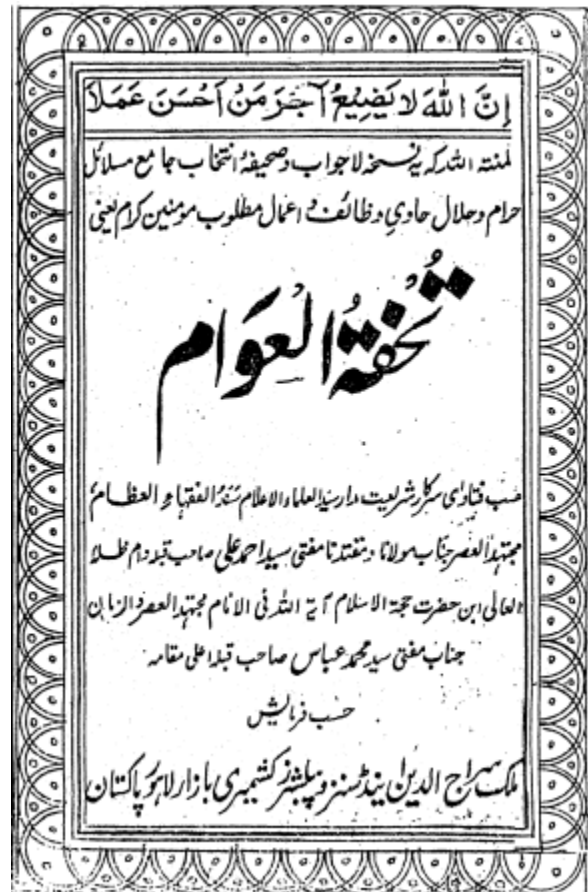 إِنَّ اللهَ لَا يَضِيْعُ اَجْرَ مَنْ اَحْسَنَ عَمَلًا
لمنتہ اللہ کہ یہ نسخہ لاجواب و صحیفہ انتخاب جامع مسائل
حرام و حلال حاوی وظائف و اعمال مطلوب مومنین کرام یعنی
تُحْفَةُ الْعِوَام
حسب فتاوٰی سرکار شریعت مدار سید العلماء الاعلام سند الفقہاء العظام
مجتہد العصر جناب مولانا و مقتدانا مفتی سید احمد علی صاحب قبلہ دام ظلہ
العالی ابن حضرت حجۃ الاسلام آیۃ اللہ فی الانام مجتہد العصر والزمان
جناب مفتی سید محمد عباس صاحب قبلہ اعلی مقامہ
حسب فرمایش
ملک سراج الدین اینڈ سنز پبلشرز کشمیری بازار لاہور پاکستان